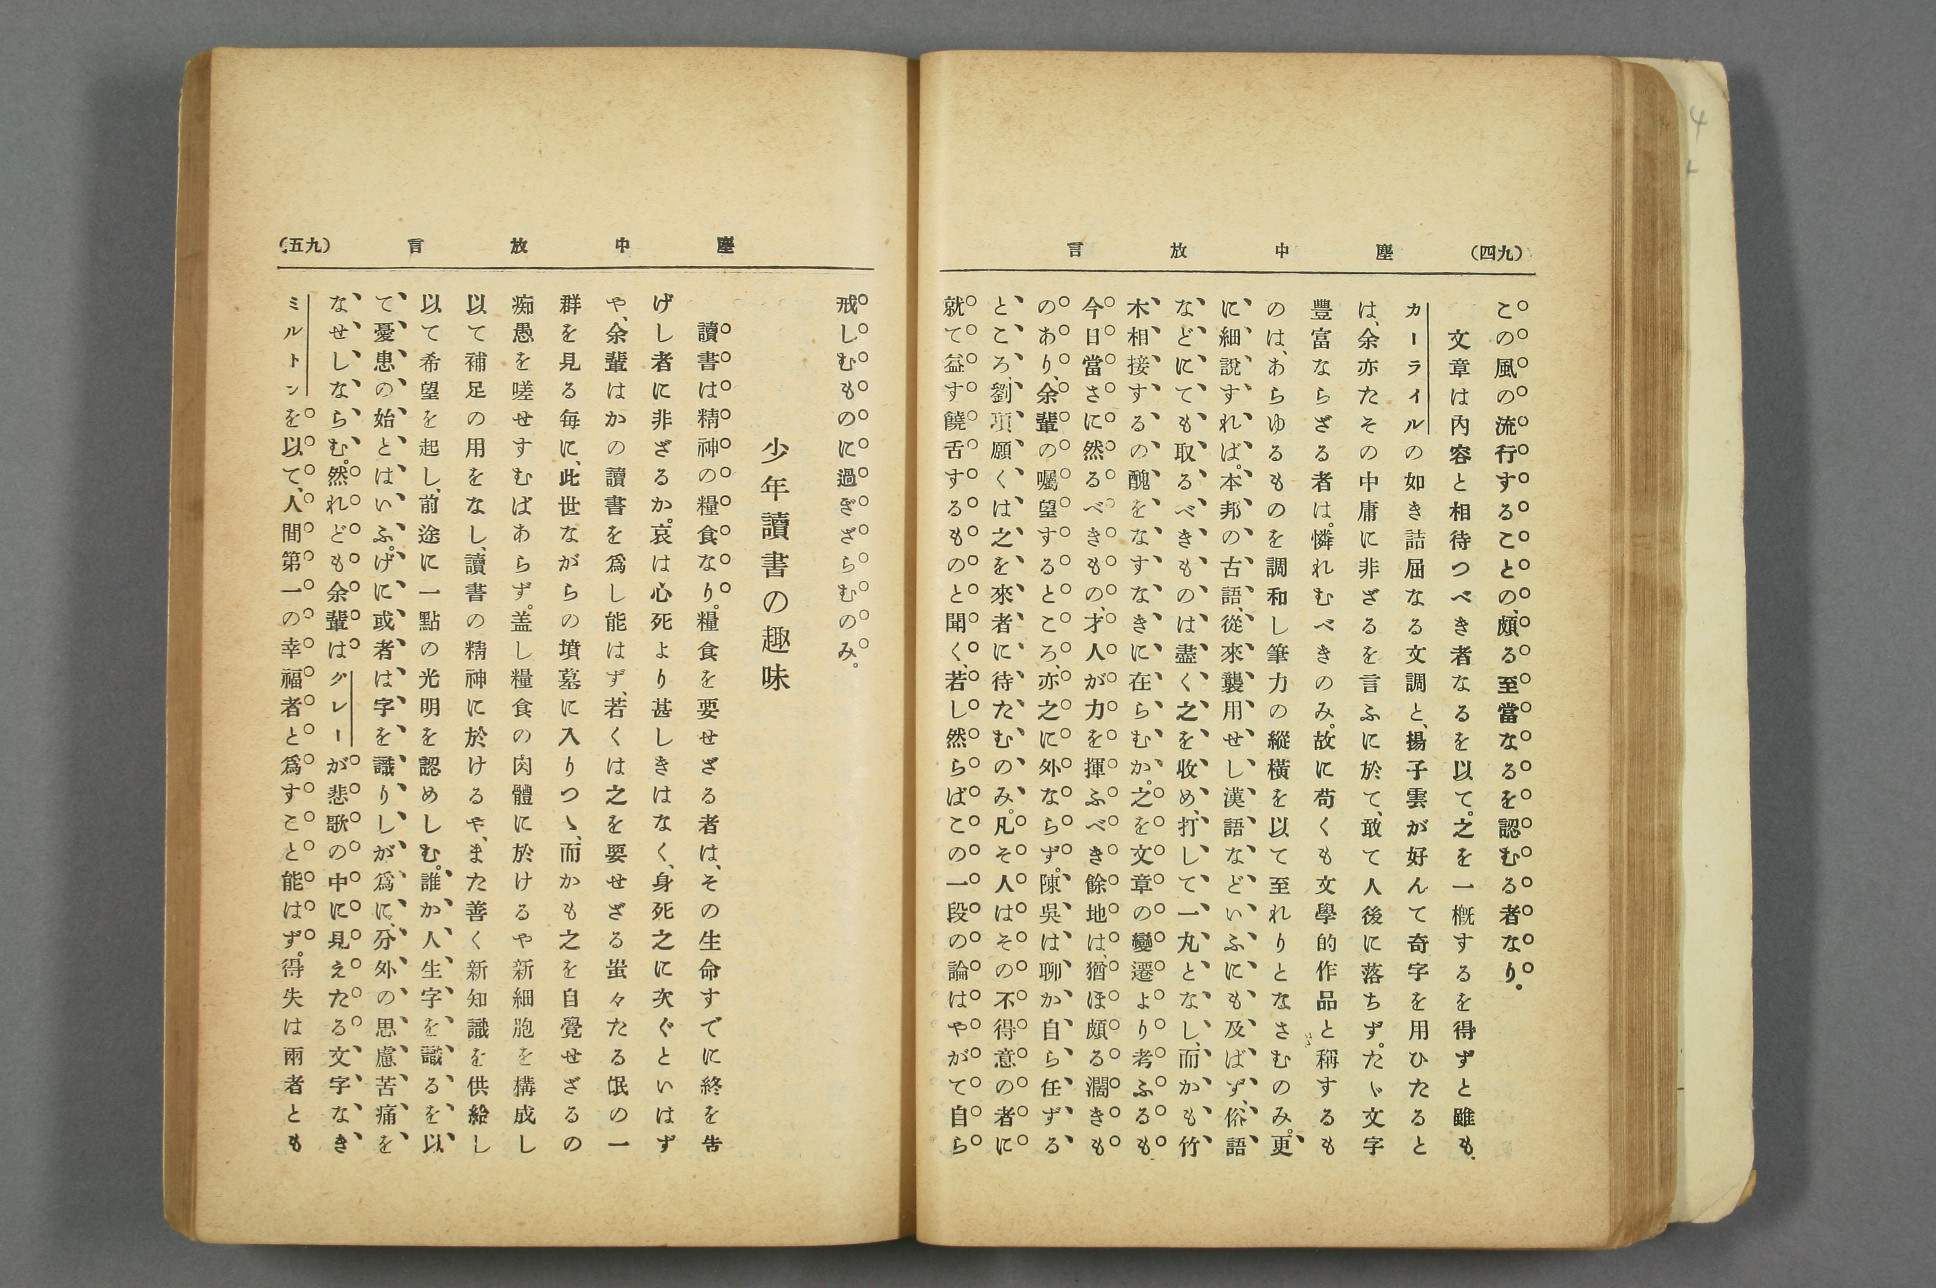 (九四)
塵中放言
この風の流行することの、頗る至當なるを認むる者なり。
文章は內容と相待つべき者なるを以て。之を一概するを得ずと雖も、
カーライルの如き詰屈なる文調と、揚子雲が好んで奇字を用ひたると
は、余亦たその中庸に非ざるを言ふに於て、敢て人後に落ちず。たゞ文字
豐富ならざる者は。憐れむべきのみ。故に苟くも文學的作品と稱するも
のは、あらゆるものを調和し筆力の縱橫を以て至れりとなさむのみ。更
に細說すれば。本邦の古語、從來襲用せし漢語などいふにも及ばず、俗語
などにても取るべきものは盡く之を收め、打して一丸となし、而かも竹
木相接するの醜をなすなきに在らむか。之を文章の變遷より考ふるも、
今日當さに然るべきもの、才人が力を揮ふべき餘地は、猶ほ頗る濶きも
のあり、余輩の囑望するところ、亦之に外ならず。陳吳は聊か自ら任ずる
ところ、劉項願くは之を來者に待たむのみ。凡そ人はその不得意の者に
就て益す饒舌するものと聞く、若し然らばこの一段の論はやがて自ら
塵中放言
(九五)
戒しむものに過ぎざらむのみ。
少年讀書の趣味
讀書は精神の糧食なり。糧食を要せざる者は、その生命すでに終を告
げし者に非ざるか。哀は心死より甚しきはなく、身死之に次ぐといはず
や、余輩はかの讀書を爲し能はず、若くは之を要せざる蚩々たる氓の一
群を見る每に、此世ながらの墳墓に入りつゝ、而かも之を自覺せざるの
痴愚を嗟せずむばあらず。盖し糧食の肉體に於けるや新細胞を構成し
以て補足の用をなし、讀書の精神に於けるや、また善く新知識を供給し
以て希望を起し、前途に一點の光明を認めしむ。誰か人生字を識るを以
て憂患の始とはいふ。げに或者は字を識りしが爲に、分外の思慮苦痛を
なせしならむ。然れども余輩はグレーが悲歌の中に見えたる文字なき
ミルトンを以て、人間第一の幸福者と爲すこと能はず。得失は兩者とも